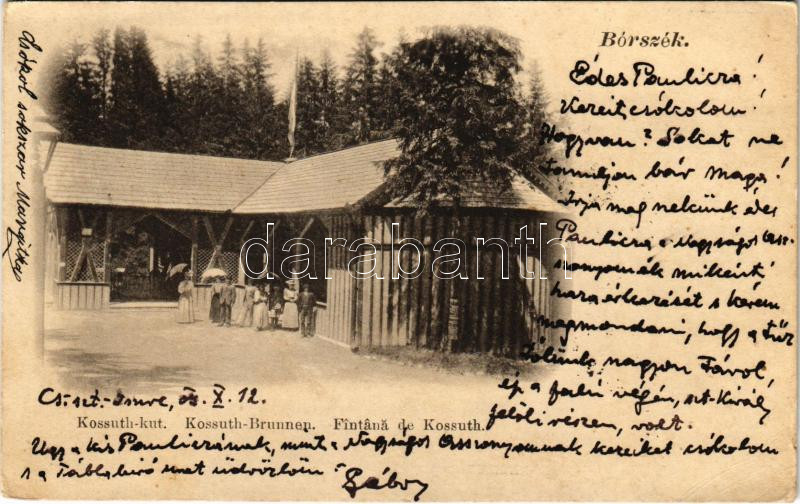 Bórszék.
Édes Paulicza!
Kezeit csókolom!
Hogy van? Sokat ne
tanuljon bár maga!
Írja meg nekünk édes
Paulicza a Nagyságos Asz-
szonyomék mikénti
hazaérkezését s kérem
megmondani, hogy a tűz
Tőlünk nagyon távol,
ép a falu végén, szt-Király
felöli részen, volt.
Csókol sokszor Margitka
Cs. szt.-Imre, 902. X. 12.
Kossuth-kut. Kossuth-Brunnen. Fîntână de Kossuth.
Ugy a kis Pauliczának, mint a Nagyságos Asszonyomnak kezeiket csókolom
s a Táblabíró urat üdvözlöm
Gábor
darabanth.com